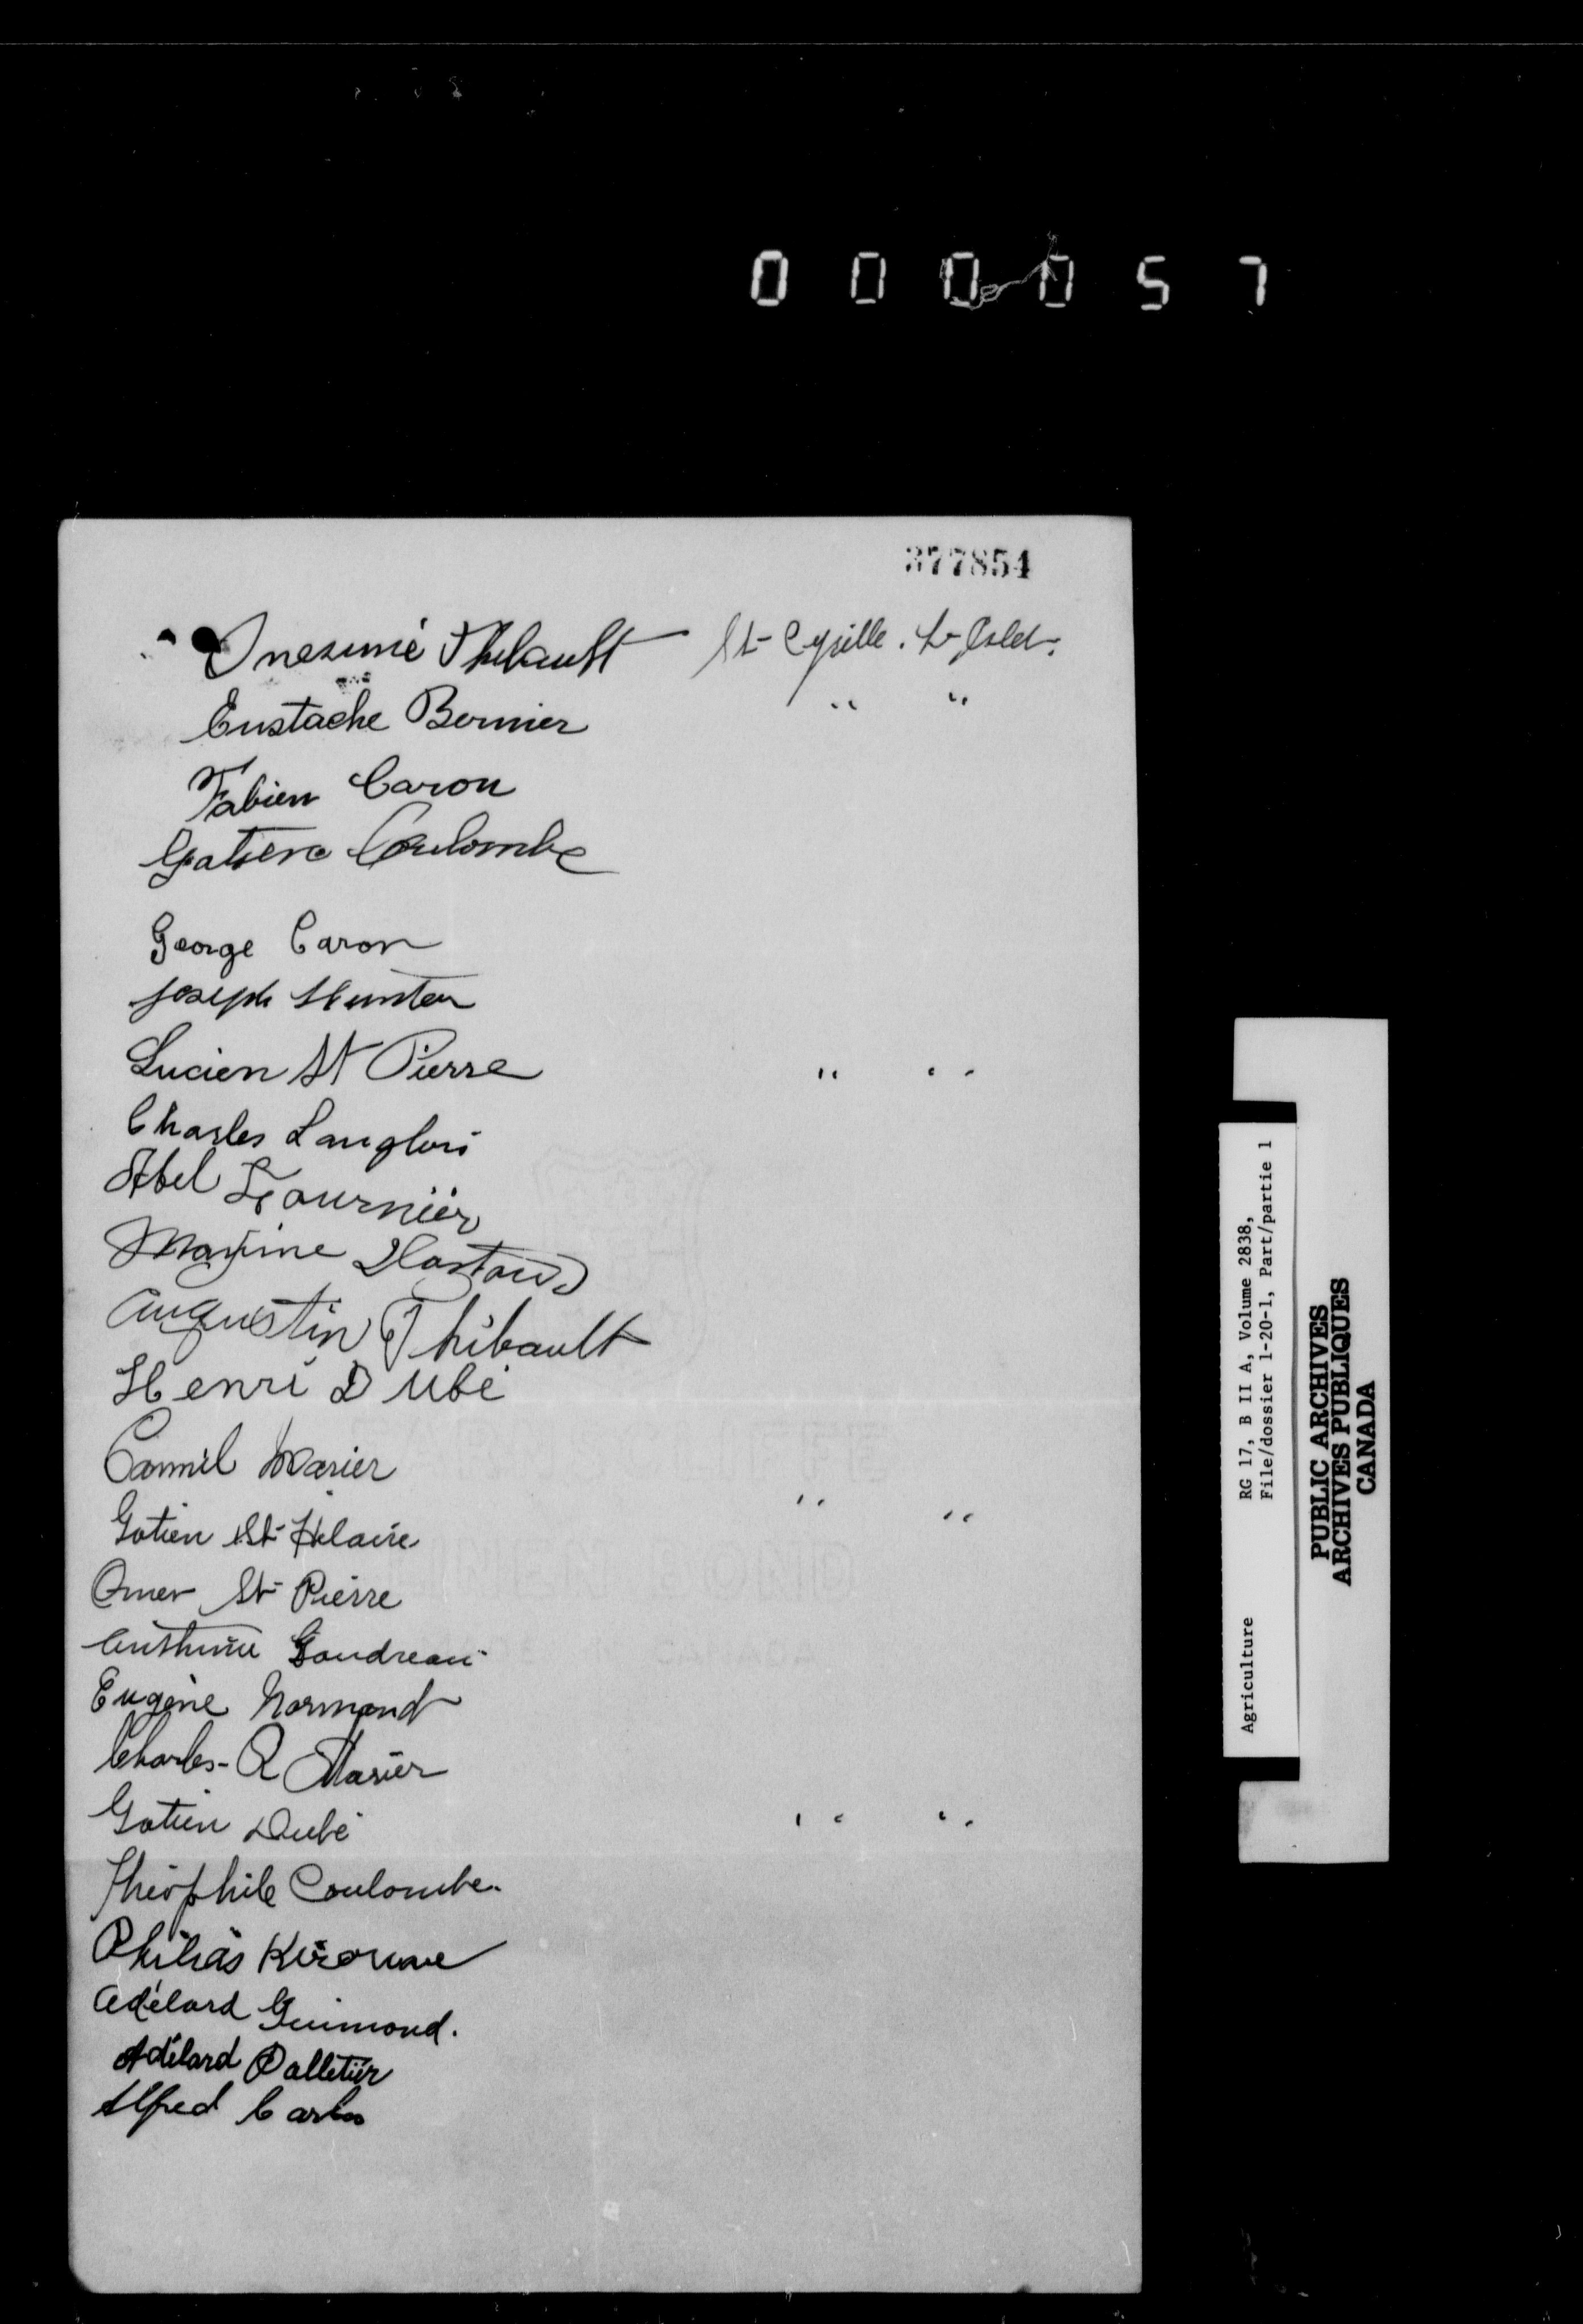 000057
377854
Onesimé Thibault St-Cyrille. L-Islet.
Eustache Bernier " "
Fabien Caron
Gatien Coulombe
George Caron
Joseph Hunter
Lucien St Pierre " "
Charles Langlois
Abel Fournier
Maxime
Augustin Thibault
Henri Dubé
Camil Marier
Gatien St-Hilaire " "
Omer St-Pierre
Gaudreau
Eugène Normand
Charles- Marier
Gatien Dubé " "
Théophile Coulombe.
Philias Kirouac
Adélard Guimond.
Adélard Palletier
Alfred
Agriculture RG 17, B II A, Volume 2838,
File/dossier 1-20-1, Part/partie 1
PUBLIC ARCHIVES
ARCHIVES PUBLIQUES
CANADA